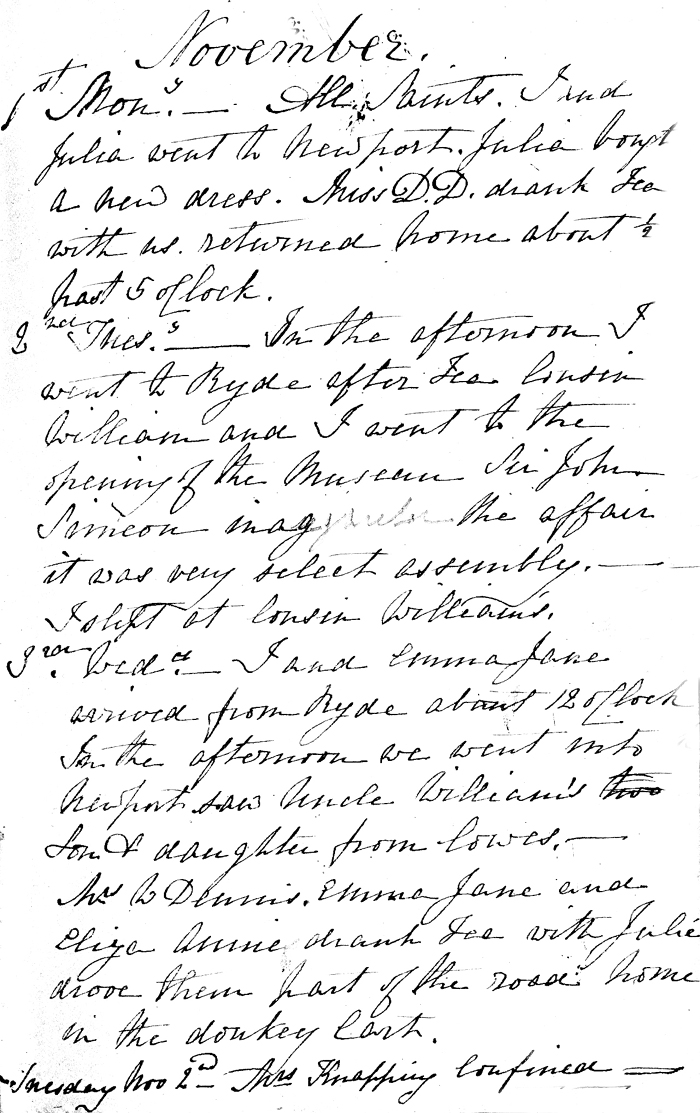 November.
1st Mony. — All Saints. I and
Julia went to Newport. Julia bougt
a new dress. Miss D.D. drank Tea
with us. returned home about ½
past 5 o'Clock.
2nd Tues.y — In the afternoon I
went to Ryde after Tea Cousin
William and I went to the
opening of the Museum Sir John
Simeon inag the affair
it was very select assembly. —
I slept at Cousin William's.
3rd. Wedd. — I and Emma Jane
arrived from Ryde about 12 o'Clock
In the afternoon we went into
Newport saw Uncle William's two
Son & daughter from Cowes. —
Mrs W Dennis. Emma Jane and
Eliza Annie drank Tea with Julia
drove them part of the road home
in the donkey Cart.
Tuesday Nov 2nd — Mrs Knapping Confined —